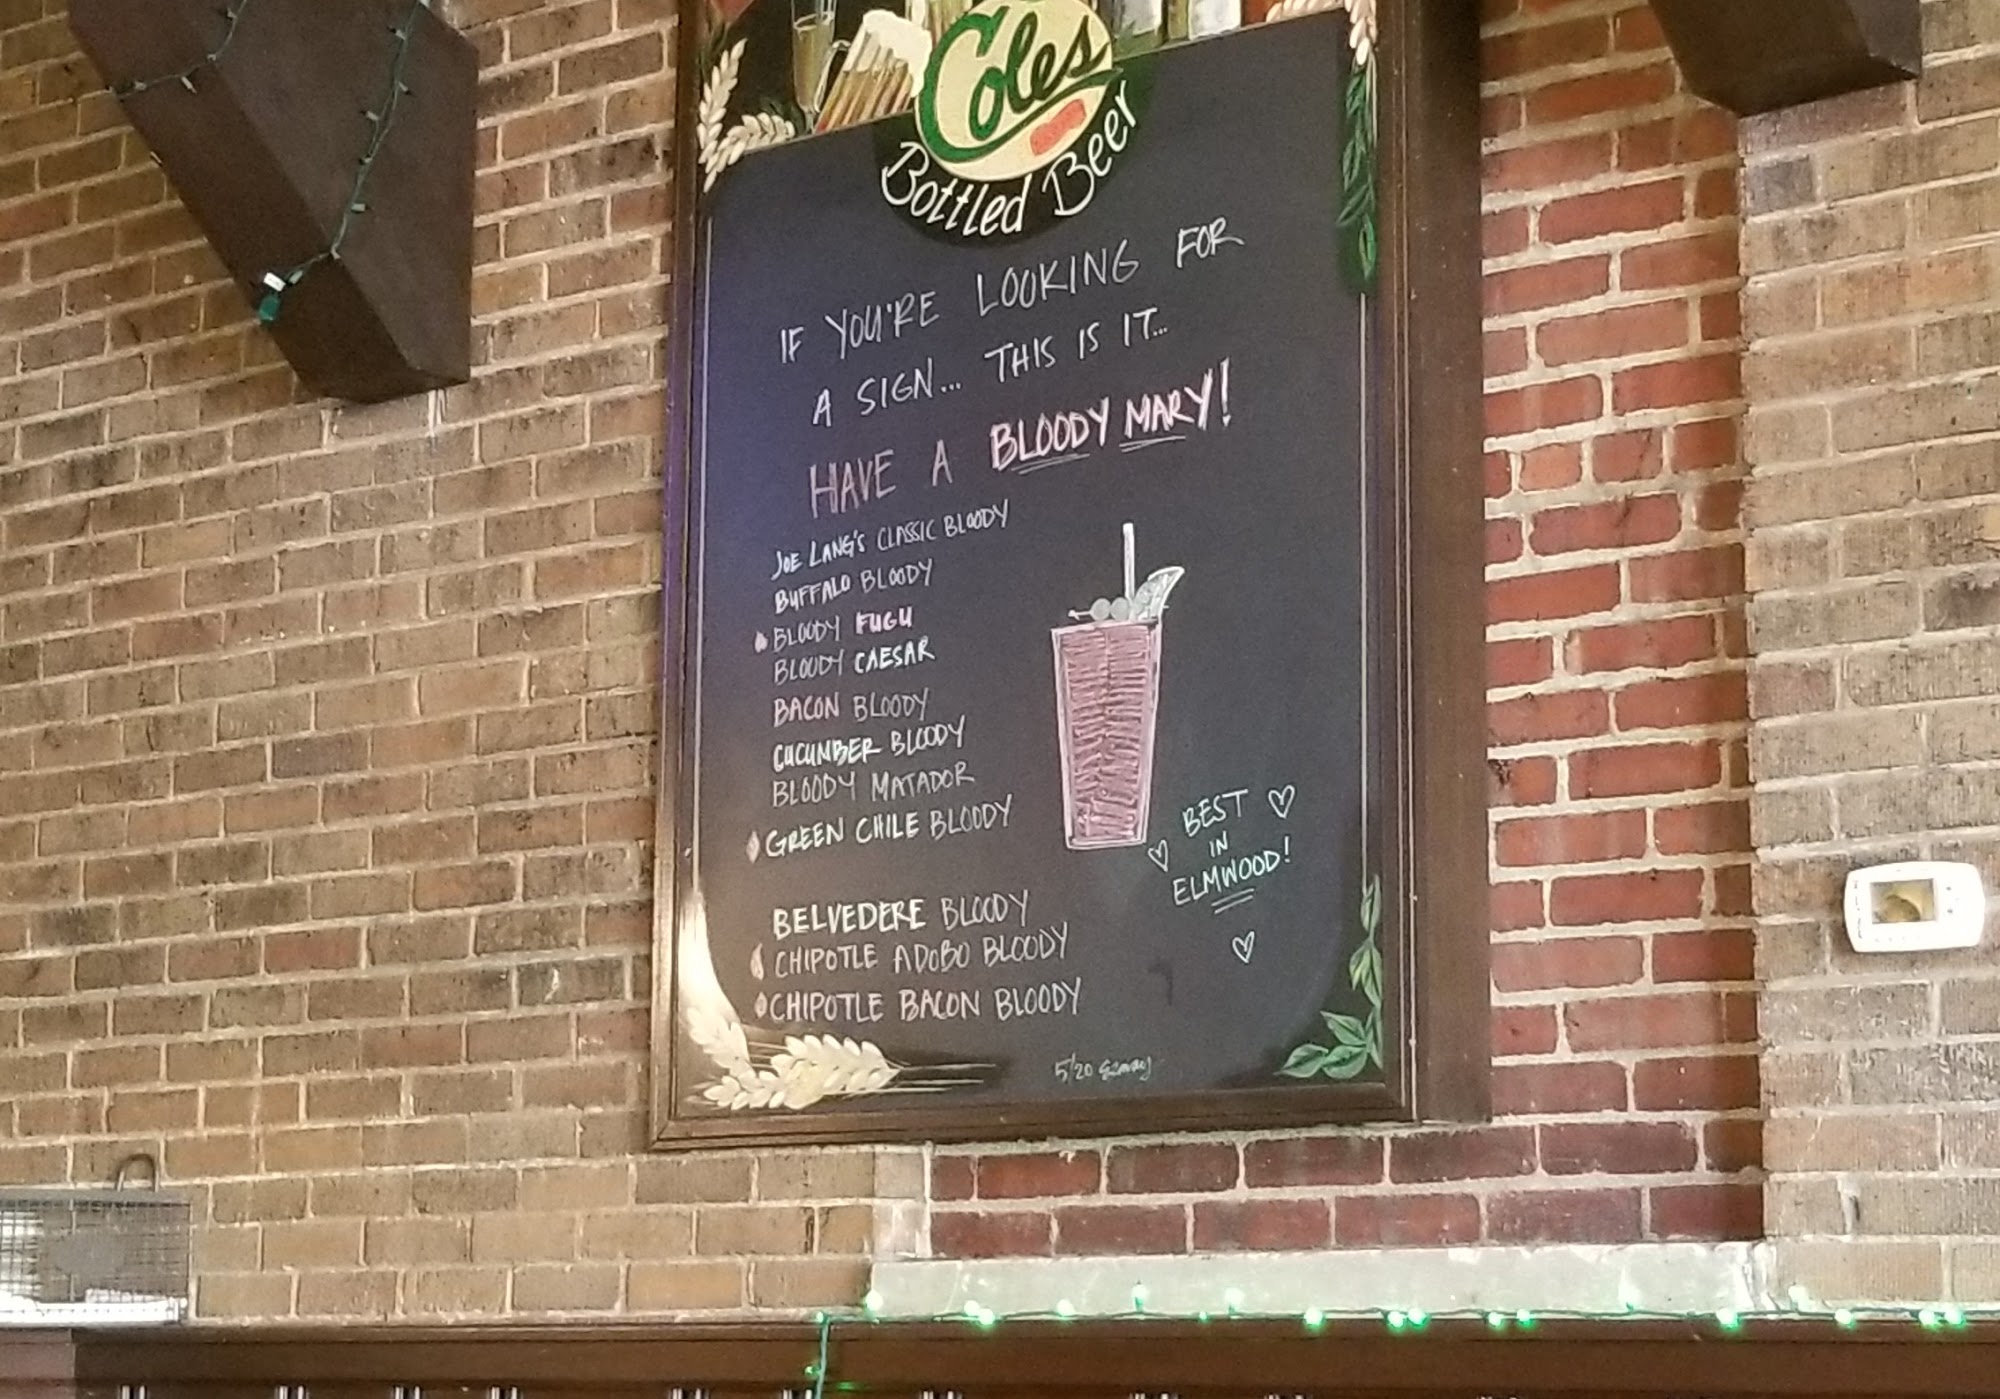 Coles
Bottled Beer
IF YOU'RE LOOKING FOR
A SIGN... THIS IS IT...
HAVE A BLOODY MARY!
JOE LANG'S CLASSIC BLOODY
BUFFALO BLOODY
BLOODY FUGU
BLOODY CAESAR
BACON BLOODY
CUCUMBER BLOODY
BLOODY MATADOR
GREEN CHILE BLOODY
BELVEDERE BLOODY
CHIPOTLE ADOBO BLOODY
CHIPOTLE BACON BLOODY
BEST
IN
ELMWOOD!
5/20